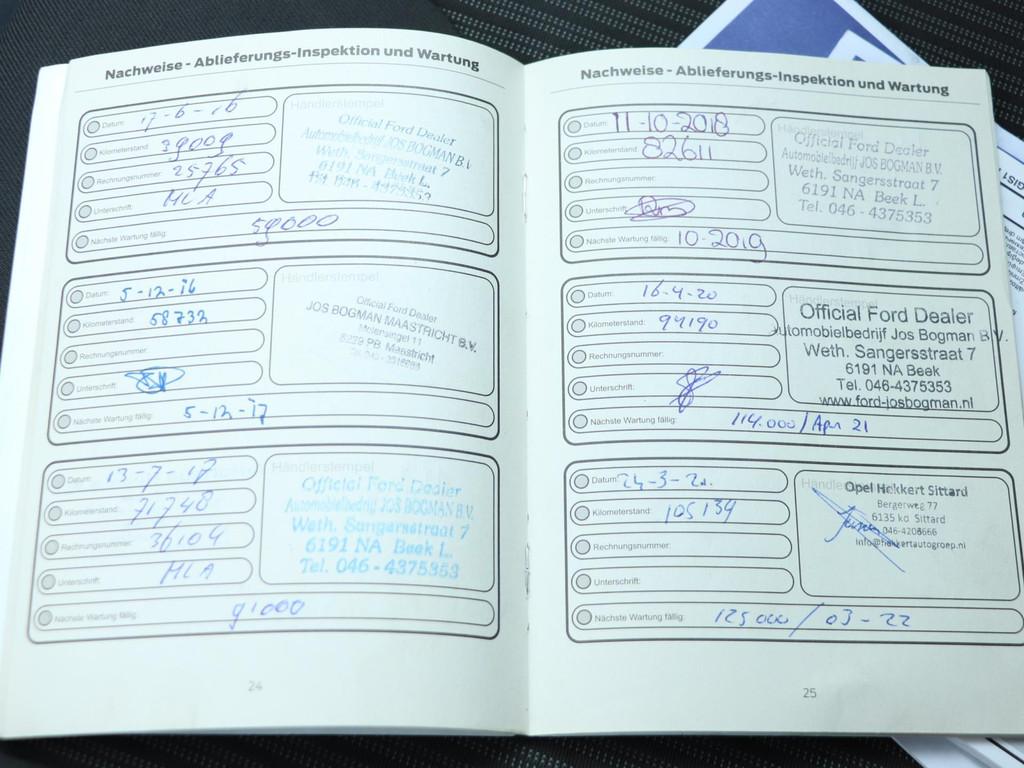 Nachweise - Ablieferungs-Inspektion und Wartung
Datum: 17-6-16
Kilometerstand: 39009
Rechnungsnummer: 25765
Unterschrift: MLA
Nächste Wartung fällig: 59000
Händlerstempel
Official Ford Dealer
Automobielbedrijf JOS BOGMAN B.V.
Weth. Sangersstraat 7
6191 NA Beek L.
Datum: 5-12-16
Kilometerstand: 58732
Rechnungsnummer:
Unterschrift:
Nächste Wartung fällig: 5-12-17
Händlerstempel
Official Ford Dealer
JOS BOGMAN MAASTRICHT B.V.
Molensingel 11
6229 PB Maastricht
Datum: 13-7-17
Kilometerstand: 71748
Rechnungsnummer: 36104
Unterschrift: MLA
Nächste Wartung fällig: 91000
Händlerstempel
Official Ford Dealer
Automobielbedrijf JOS BOGMAN B.V.
Weth. Sangersstraat 7
6191 NA Beek L.
Tel. 046 - 4375353
24
Nachweise - Ablieferungs-Inspektion und Wartung
Datum: 11-10-2018
Kilometerstand: 82611
Rechnungsnummer:
Unterschrift:
Nächste Wartung fällig: 10-2019
Händlerstempel
Official Ford Dealer
Automobielbedrijf JOS BOGMAN B.V.
Weth. Sangersstraat 7
6191 NA Beek L.
Tel. 046 - 4375353
Datum: 16-4-20
Kilometerstand: 94190
Rechnungsnummer:
Unterschrift:
Nächste Wartung fällig: 114.000 / Apr 21
Händlerstempel
Official Ford Dealer
Automobielbedrijf Jos Bogman B.V.
Weth. Sangersstraat 7
6191 NA Beek
Tel. 046-4375353
www.ford-josbogman.nl
Datum: 24-3-21
Kilometerstand: 105134
Rechnungsnummer:
Unterschrift:
Nächste Wartung fällig: 125000 / 03-22
Opel Hekkert Sittard
Bergerweg 77
6135 kd Sittard
046-4206666
info@hekkertautogroep.nl
25